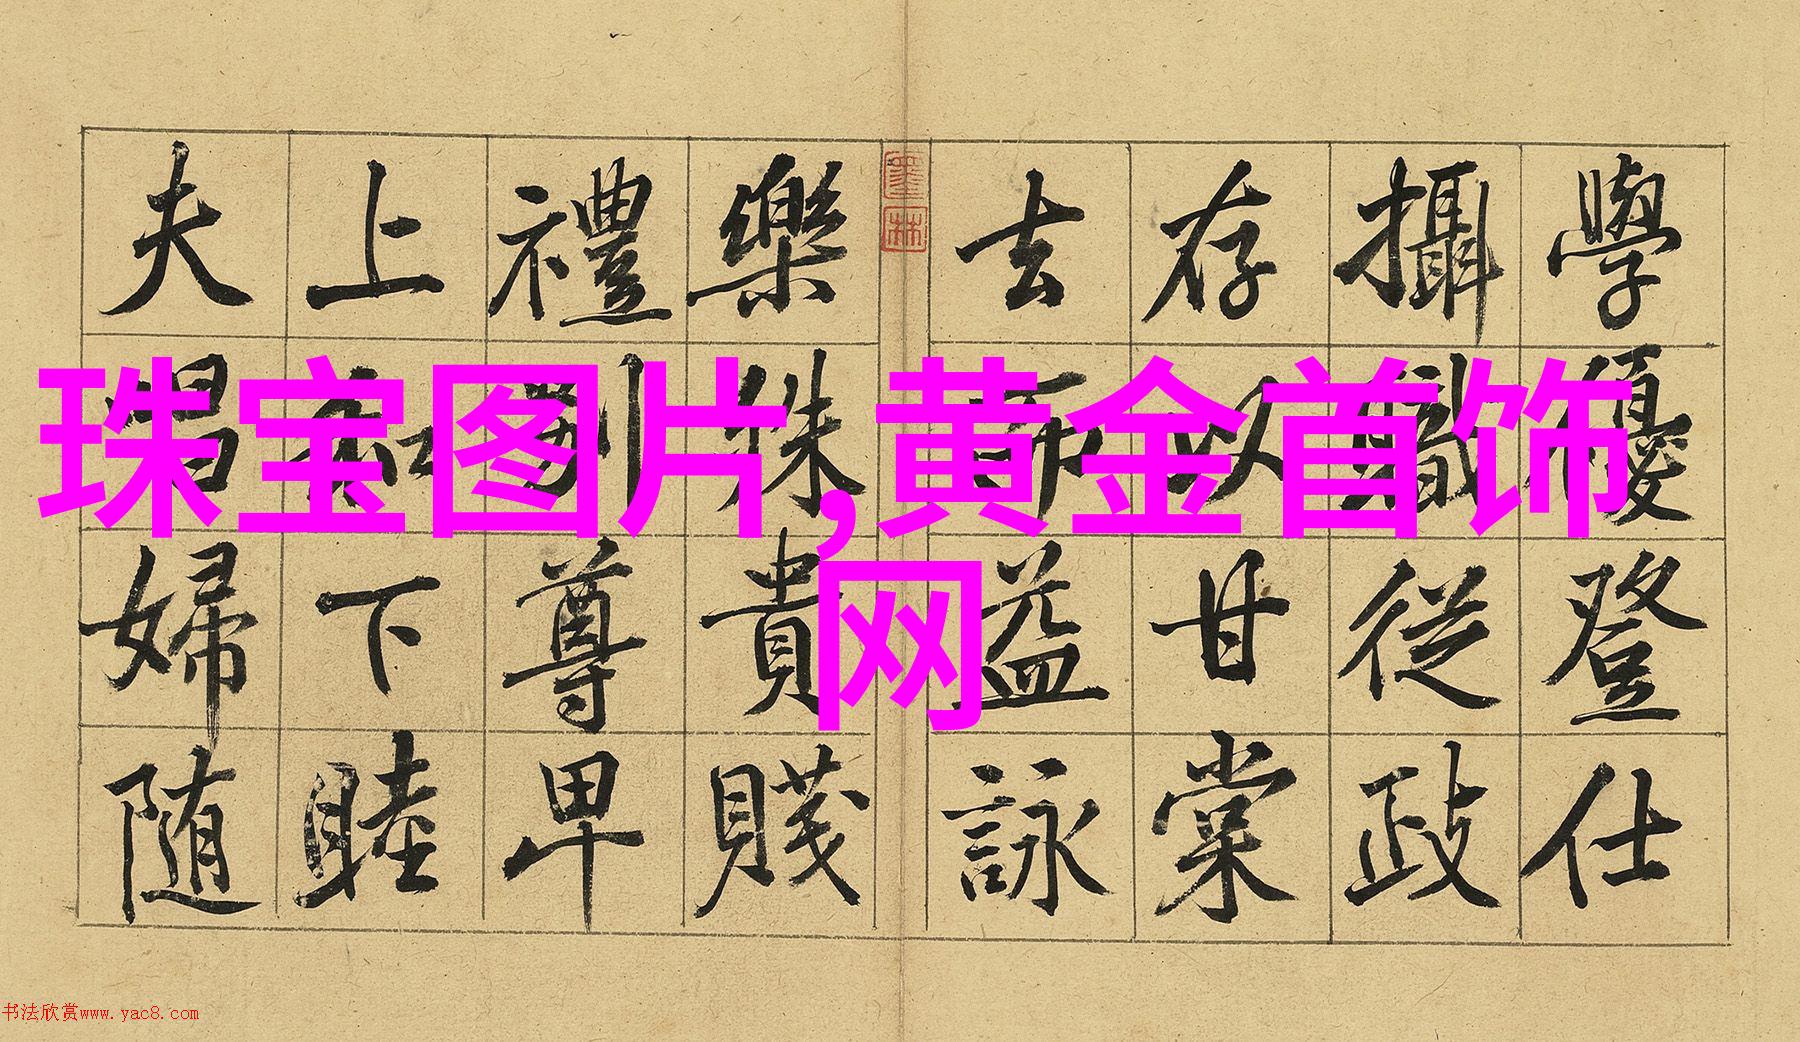 學優登仕
攝職從政
存以甘棠
去而益詠
樂殊貴賤
禮別尊卑
上和下睦
夫唱婦随
墨林
珠宝图片,黄金首饰
网
书法欣赏www.yac8.com